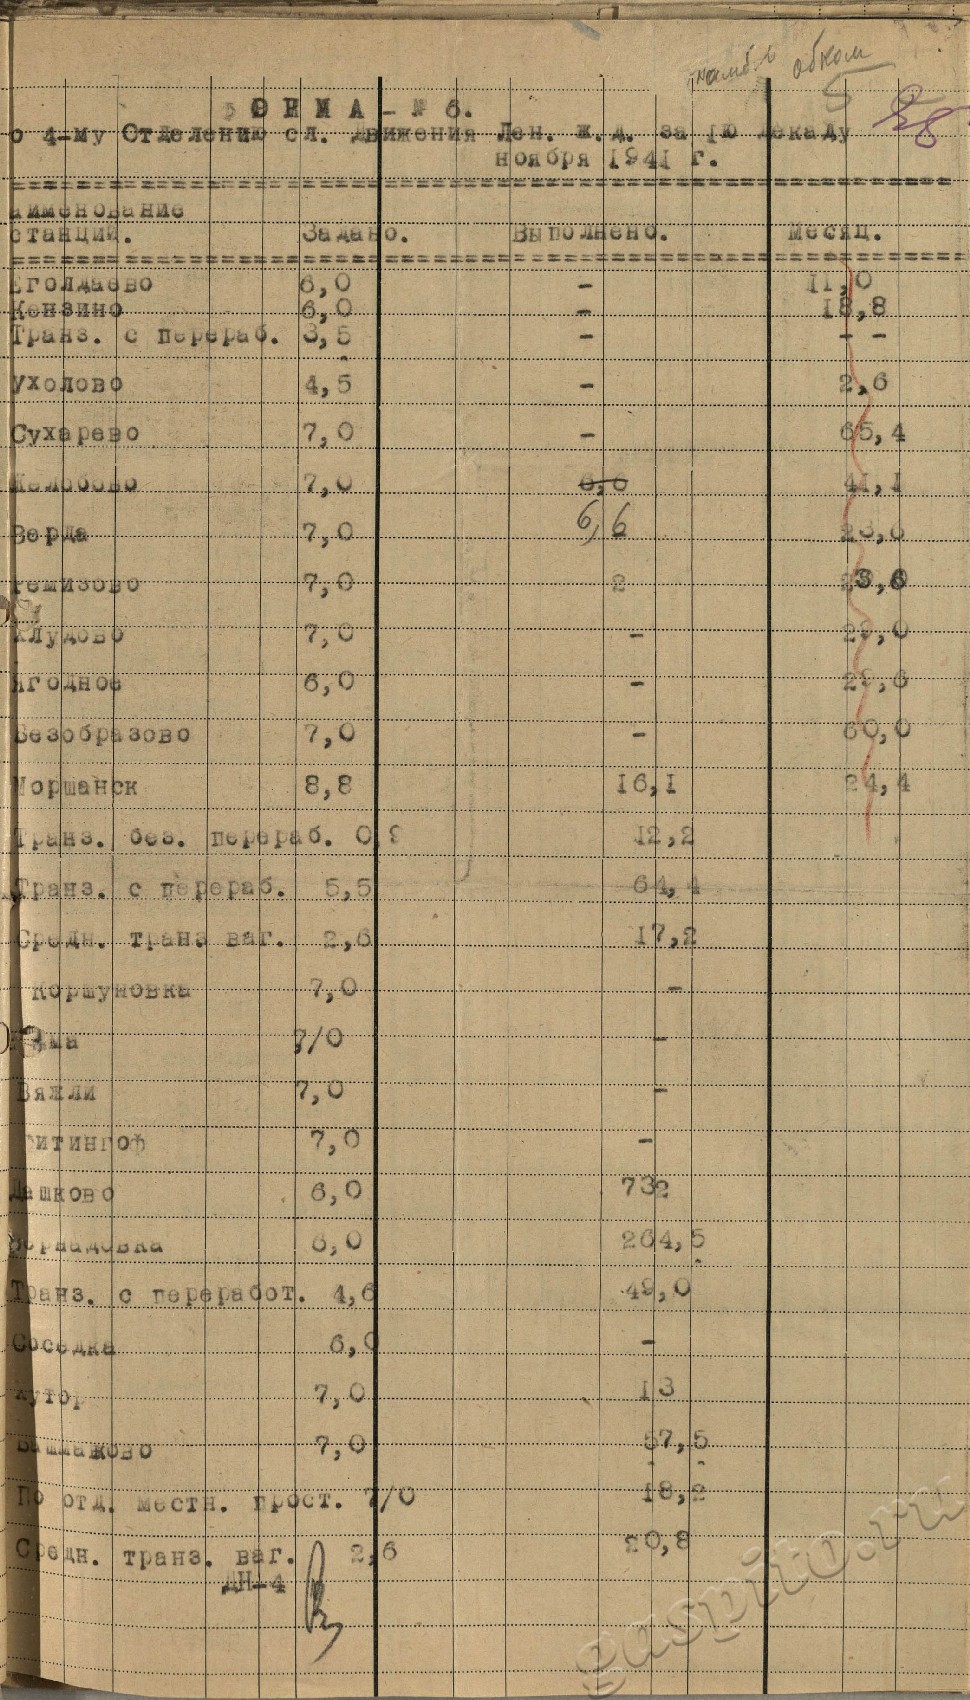 обком
5
28
ФОРМА - № 6.
о 4-му Отделению сл. движения Лен. ж.д. за 1ю декаду
ноября 1941 г.
аименование
станций. Задано. Выполнено. Месяц.
Еголдаево 6,0 - 11,0
Кензино 6,0 - 18,8
Транз. с перераб. 3,5 - - -
Ухолово 4,5 - 2,6
Сухарево 7,0 - 65,4
Желобово 7,0 6,6 41,1
Верда 7,0 6,6 23,6
Ремизово 7,0 2 23,6
Хлудово 7,0 - 29,0
Ягодное 6,0 - 29,6
Безобразово 7,0 - 60,0
Моршанск 8,8 16,1 24,4
Транз. без. перераб. 0,9 12,2
Транз. с перераб. 5,5 64,4
Средн. транз ваг. 2,6 17,2
Коршуновка 7,0 -
7/0 -
Вяжли 7,0 -
Фитингоф 7,0 -
Дашково 6,0 732
Вернадовка 6,0 264,5
Транз. с переработ. 4,6 49,0
Соседка 6,0 -
Хутор 7,0 13
Башмаково 7,0 57,5
По отд. местн. прост. 7/0 18,2
Средн. транз. ваг. 2,6 20,8
ДН-4
gaspito.ru